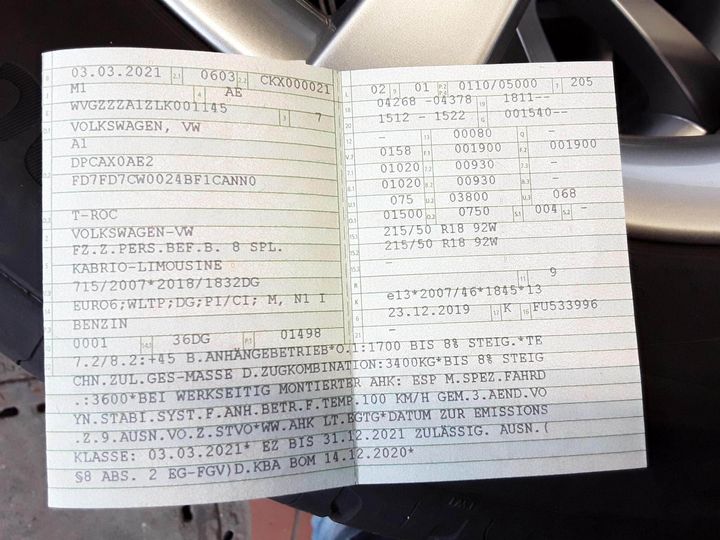 03.03.2021 2.1 0603 2.2 CKX000021
M1 4 AE
WVGZZZA1ZLK001145 3 7
VOLKSWAGEN, VW
A1
DPCAX0AE2
FD7FD7CW0024BF1CANN0
T-ROC
VOLKSWAGEN-VW
FZ.Z.PERS.BEF.B. 8 SPL.
KABRIO-LIMOUSINE
715/2007*2018/1832DG
EURO6;WLTP;DG;PI/CI; M, N1 I
BENZIN
0001 36DG P.1 01498
L 02 9 01 P.2 0110/05000 T 205
18 04268 -04378 19 1811--
20 1512 - 1522 G 001540--
12 - 13 00080 Q -
V.7 0158 F.1 001900 F.2 001900
7.1 01020 7.2 00930 -
8.1 01020 8.2 00930 8.3 -
U.1 075 U.2 03800 U.3 068
O.1 01500 O.2 0750 S.1 004 S.2 -
15.1 215/50 R18 92W
15.2 215/50 R18 92W
15.3 -
R 11 9
K e13*2007/46*1845*13
6 23.12.2019 17 K 16 FU533996
21 -
7.2/8.2:+45 B.ANHÄNGEBETRIEB*O.1:1700 BIS 8% STEIG.*TE
CHN.ZUL.GES-MASSE D.ZUGKOMBINATION:3400KG*BIS 8% STEIG
.:3600*BEI WERKSEITIG MONTIERTER AHK: ESP M.SPEZ.FAHRD
YN.STABI.SYST.F.ANH.BETR.F.TEMP.100 KM/H GEM.3.AEND.VO
.Z.9.AUSN.VO.Z.STVO*WW.AHK LT.EGTG*DATUM ZUR EMISSIONS
KLASSE: 03.03.2021* EZ BIS 31.12.2021 ZULÄSSIG. AUSN.(
§8 ABS. 2 EG-FGV)D.KBA BOM 14.12.2020*